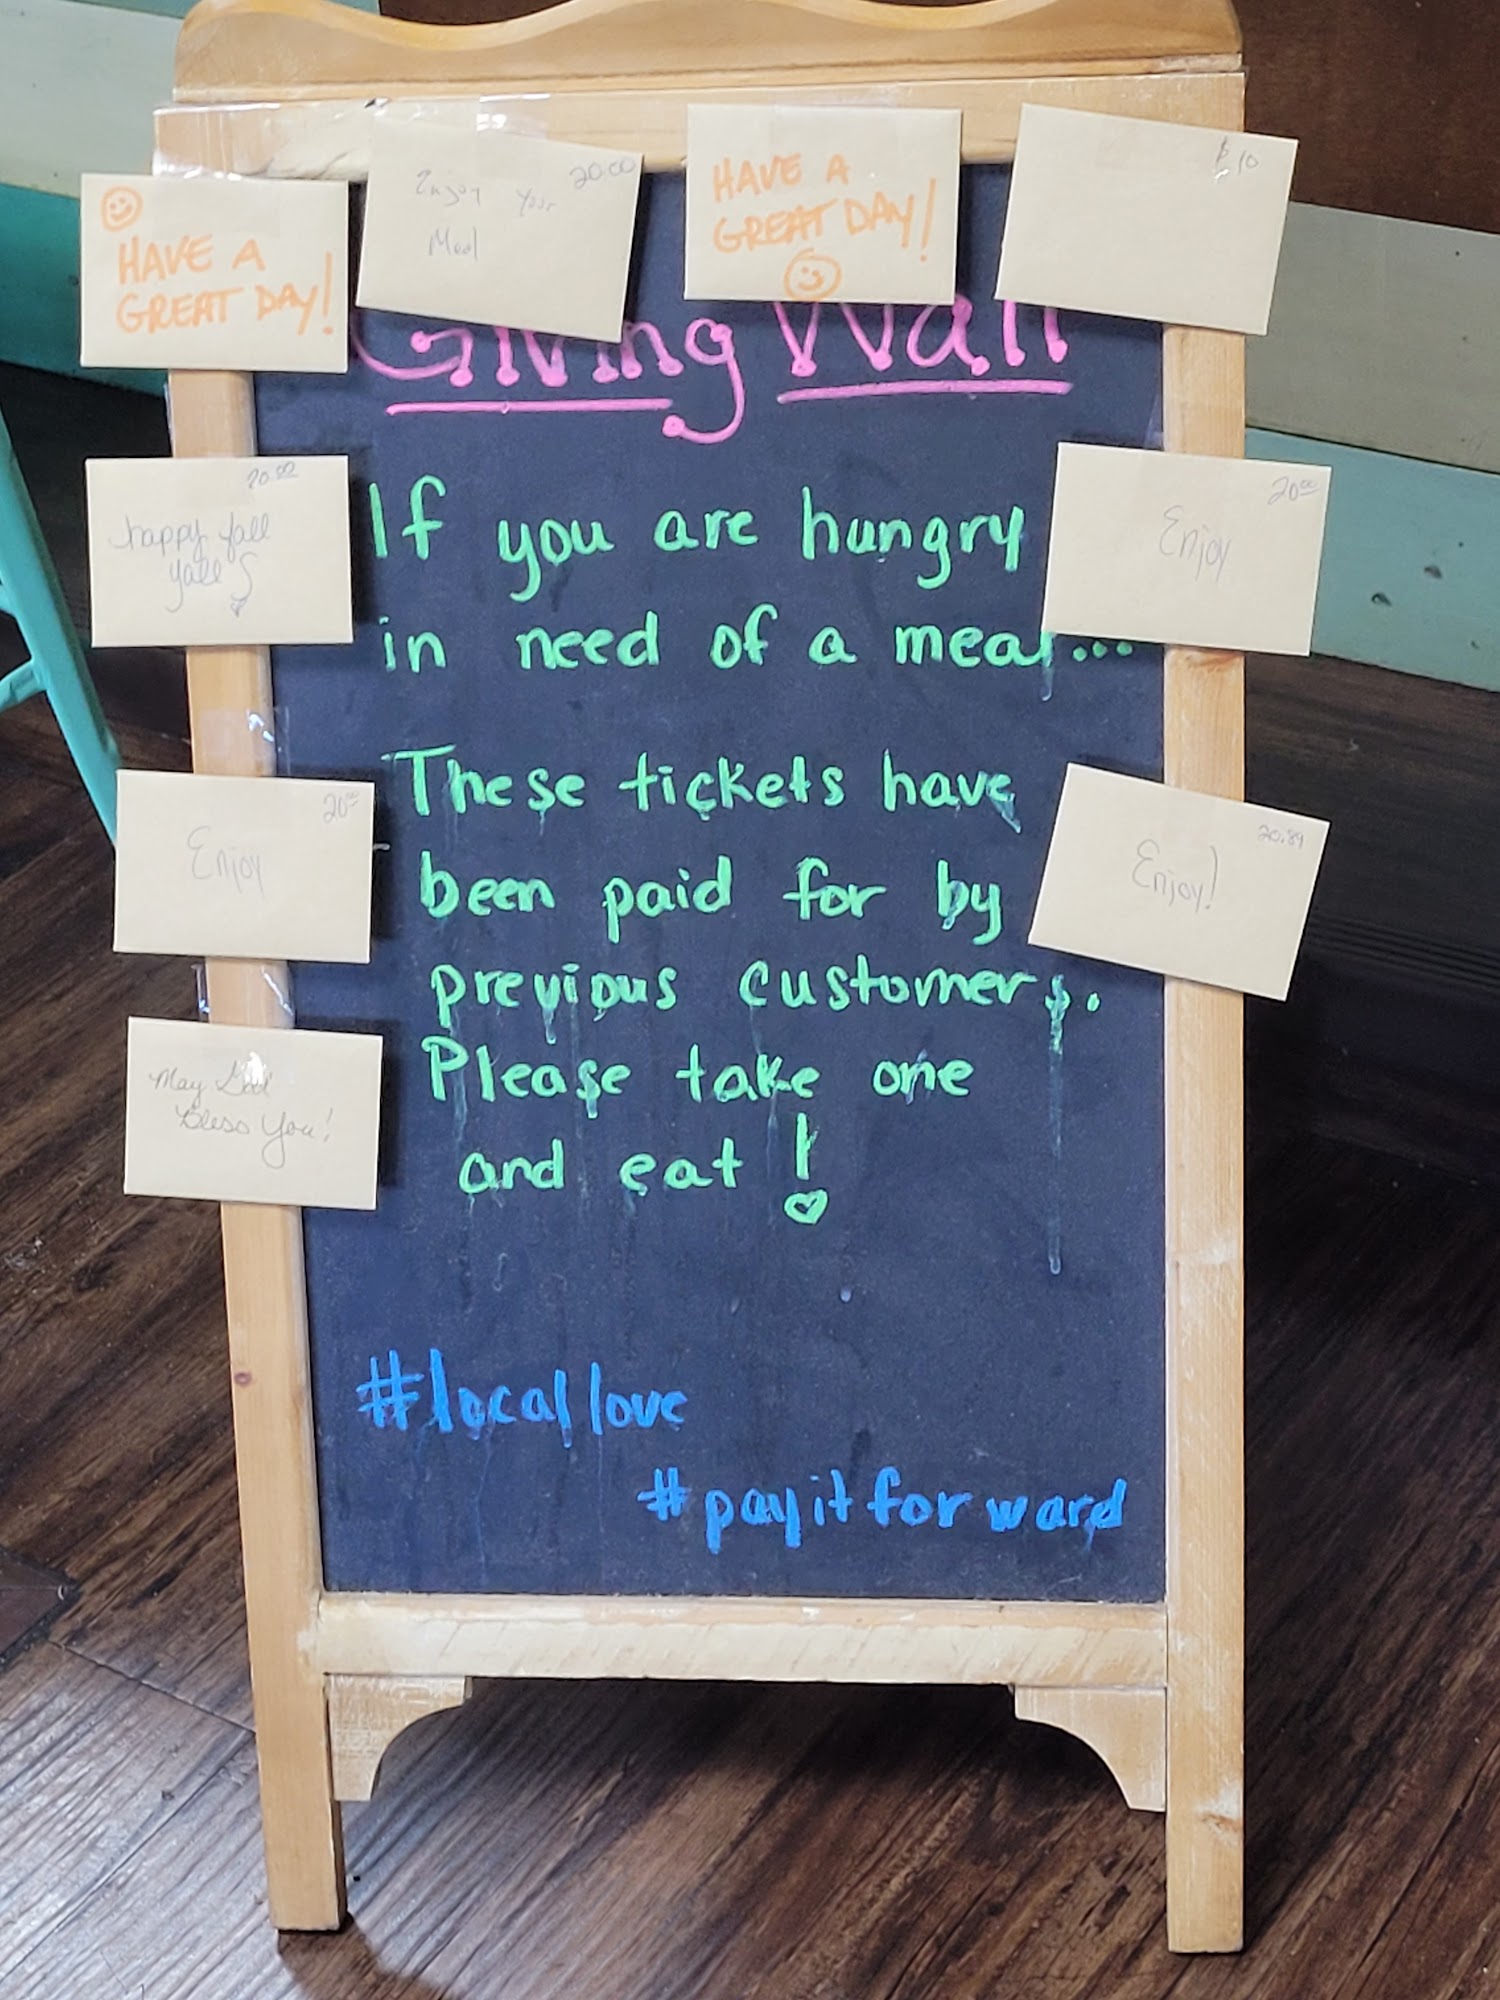 HAVE A
GREAT DAY!
20.00
Enjoy your
Meal
HAVE A
GREAT DAY!
$10
Giving Wall
20.00
happy fall
yall
If you are hungry
in need of a meal...
20.00
Enjoy
These tickets have
been paid for by
previous customers.
Please take one
and eat!
20.00
Enjoy
20.89
Enjoy!
May God
Bless You!
#locallove
#payitforward